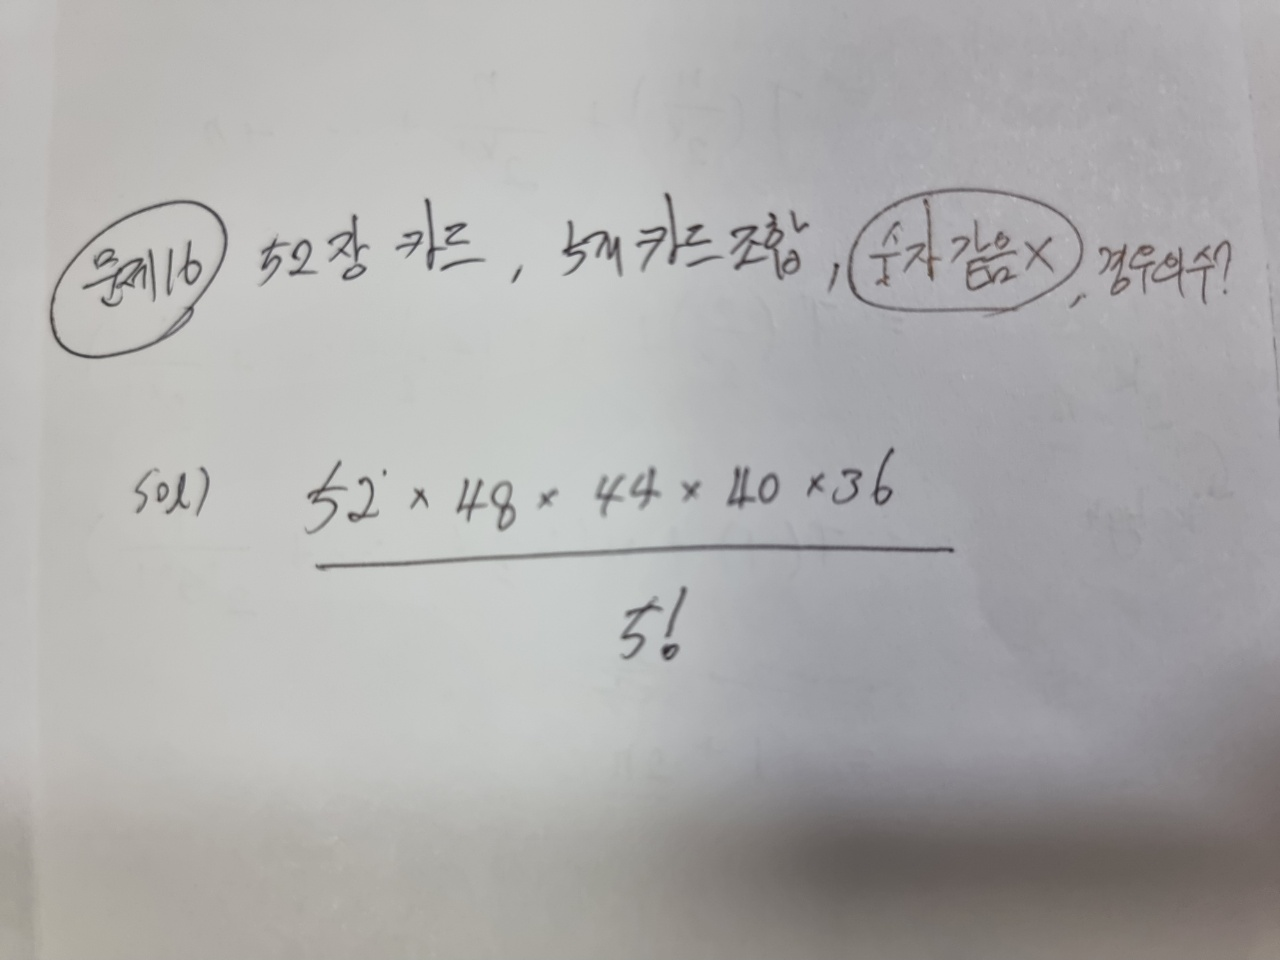 문제16 52장 카드, 5개 카드 조합, 숫자 같음 X, 경우의 수?
sol) 52 × 48 × 44 × 40 × 36
5!